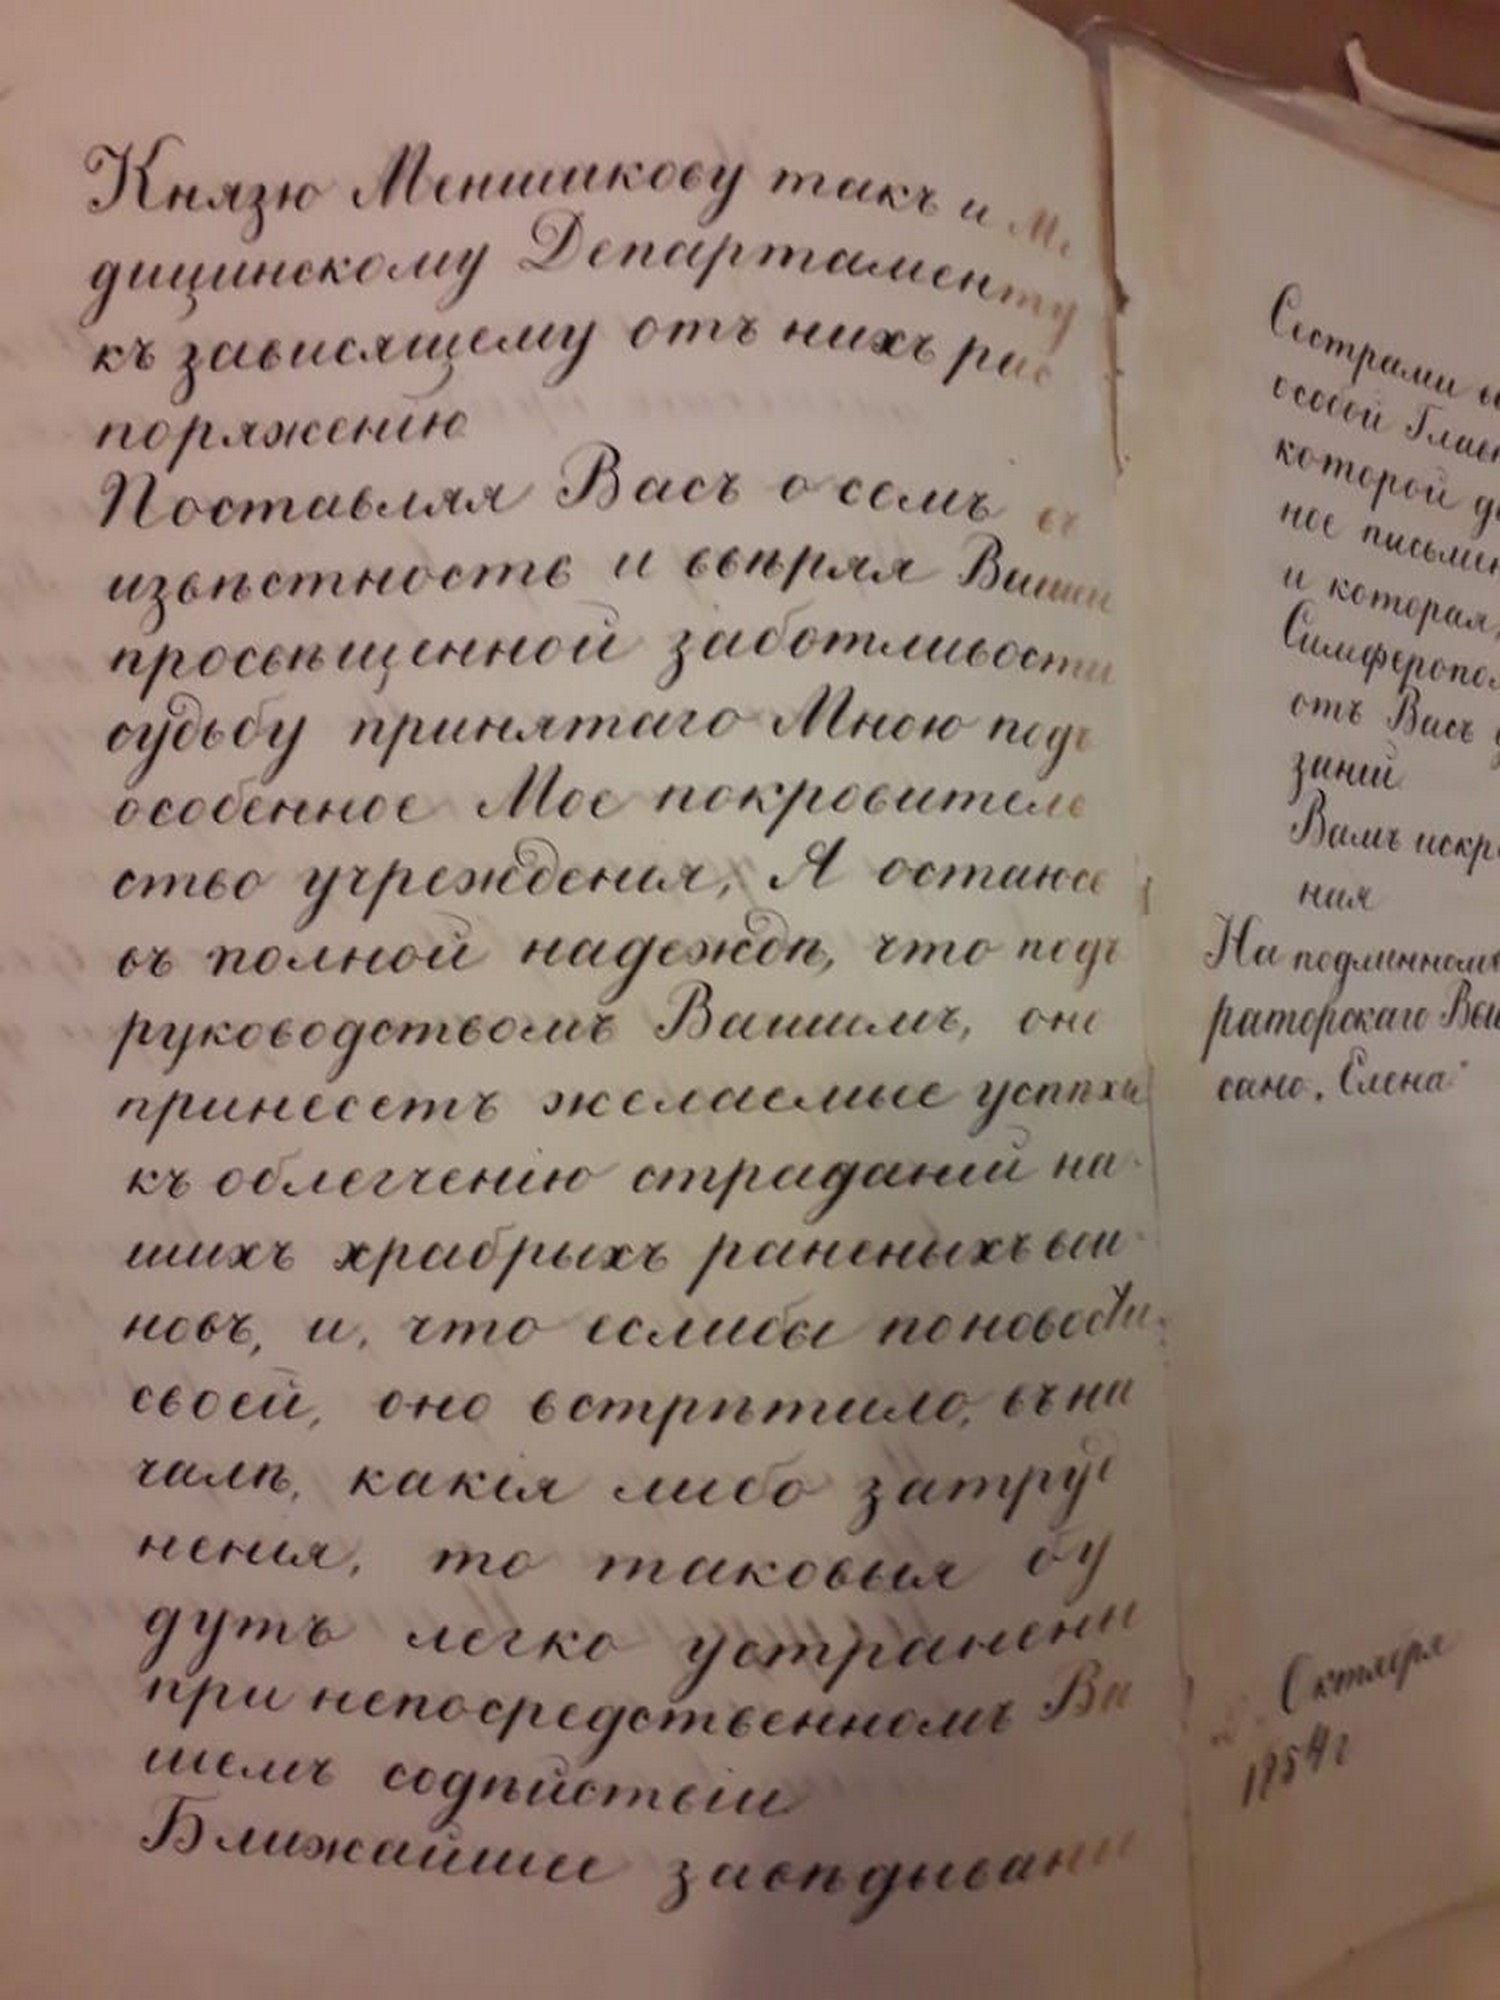 Князю Меншикову такъ и Ме
дицинскому Департаменту
къ зависящему отъ нихъ рас
поряженію
Поставляя Васъ о семъ въ
извѣстность и ввѣряя Вашей
просвѣщенной заботливости
судьбу принятаго Мною подъ
особенное Мое покровитель
ство учрежденія, Я остаюсь
въ полной надеждѣ, что подъ
руководствомъ Вашимъ, оно
принесетъ желаемые успѣхи
къ облегченію страданій на-
шихъ храбрыхъ раненыхъ вои-
новъ, и, что еслибы по новости
своей, оно встрѣтило, въ на
чалѣ, какія либо затруд
ненія, то таковыя бу
дутъ легко устранены
при непосредственномъ Ва
шемъ содѣйствіи
Ближайшее завѣдывани
Сестрами
особой Глав
которой
ное письмен
и которая,
Симферопол
отъ Васъ
заній
Вамъ искр
нія
На подлинномъ
раторскаго Выс
сано. Елена
Октября
1854 г